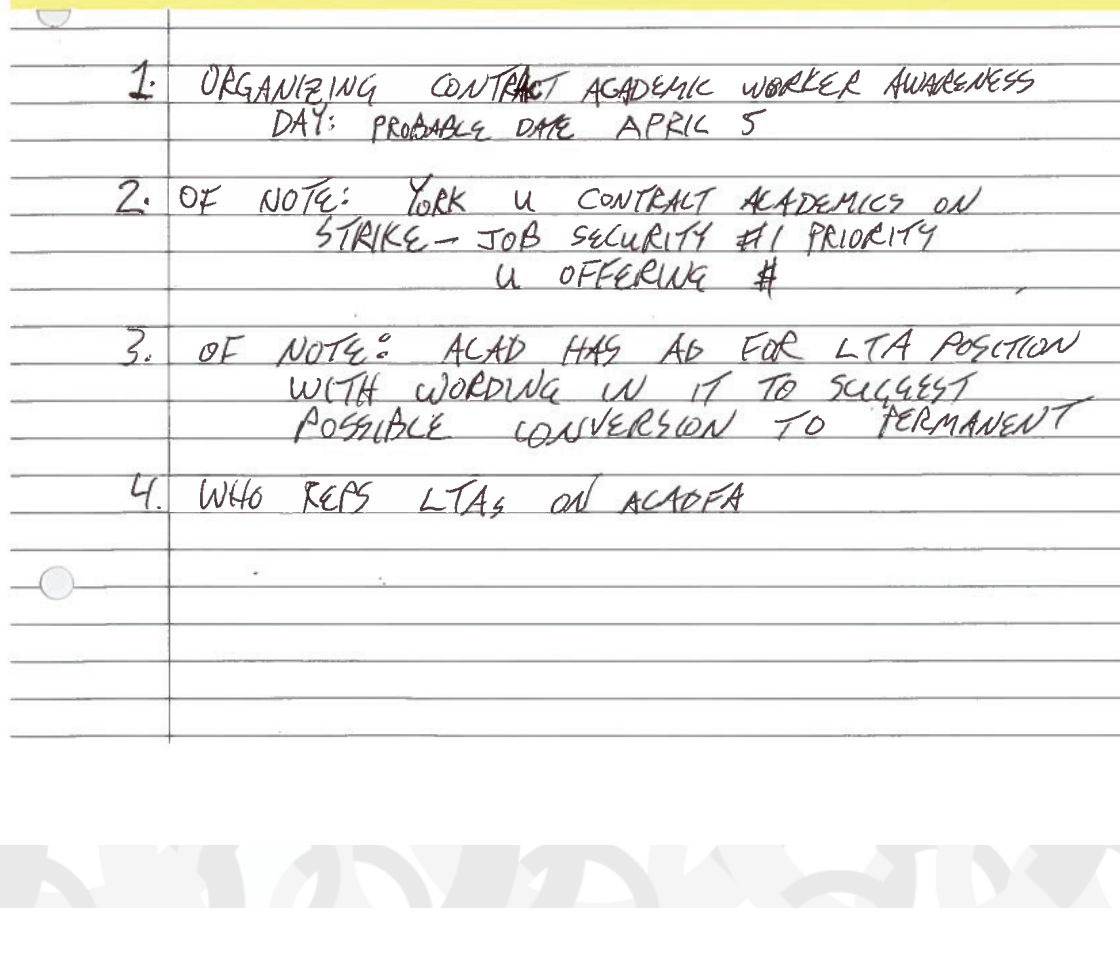 1. ORGANIZING CONTRACT ACADEMIC WORKER AWARENESS
DAY: PROBABLE DATE APRIL 5
2. OF NOTE: YORK U CONTRACT ACADEMICS ON
STRIKE - JOB SECURITY #1 PRIORITY
U OFFERING #
3. OF NOTE: ACAD HAS AD FOR LTA POSITION
WITH WORDING IN IT TO SUGGEST
POSSIBLE CONVERSION TO PERMANENT
4. WHO REPS LTAs ON ACADFA